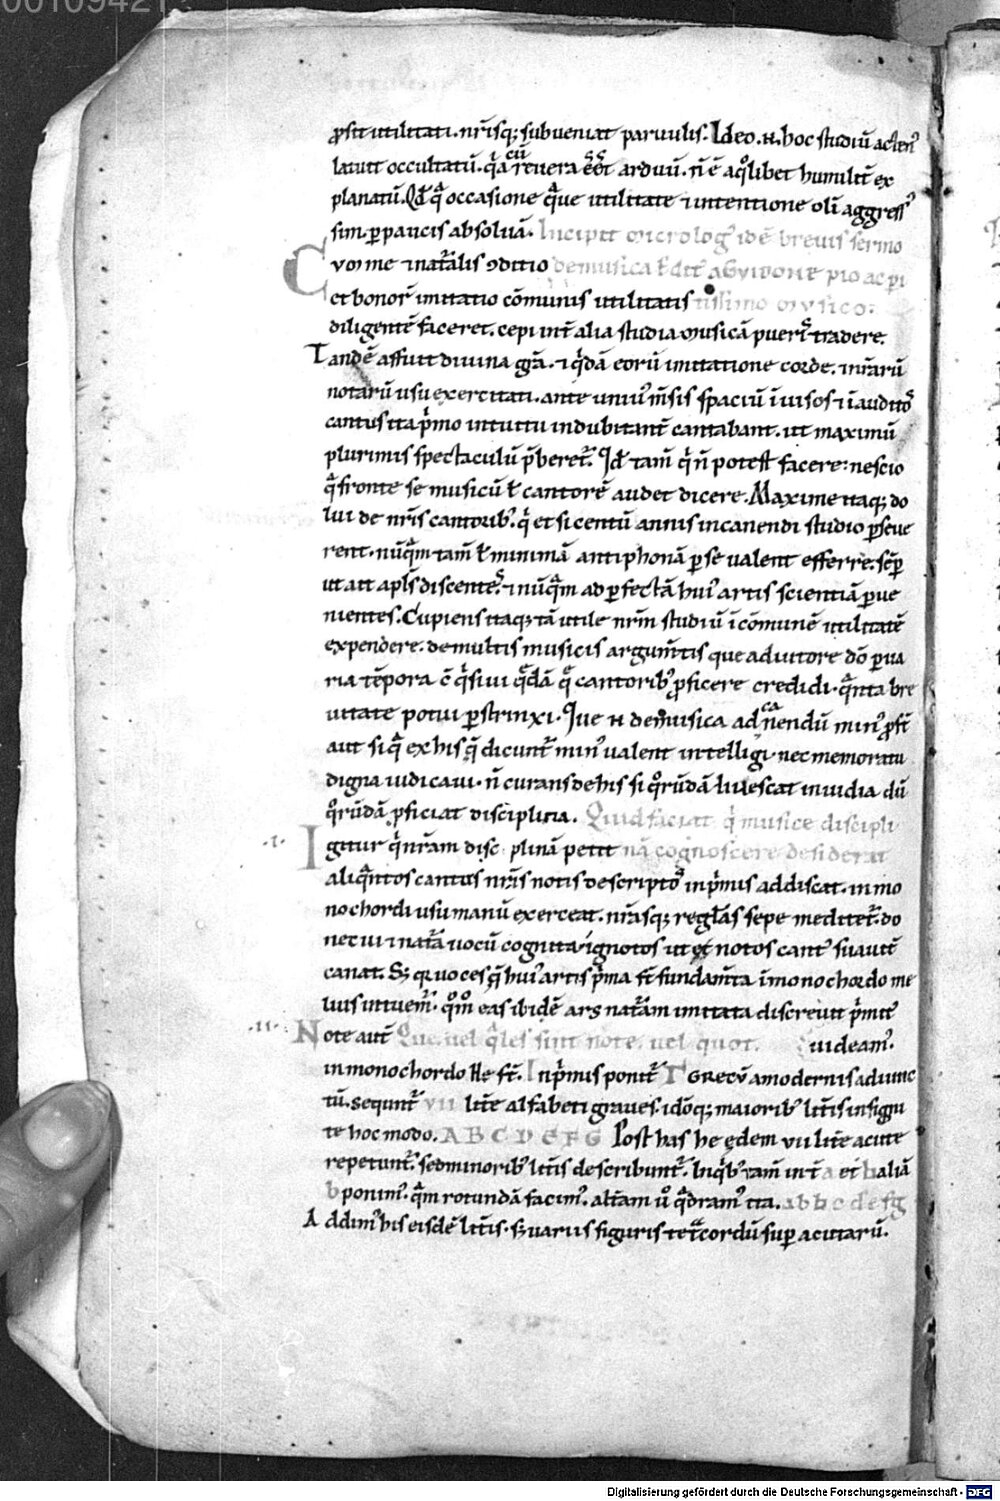 00109421
ꝓsit utilitati. nr̄isq; subueniat paruulis. Ideo. n̄. hoc studiū actenꝰ
latuit occultatū. q̄a cū reuera eēt arduū. n̄ ē a q̊libet humilit̄ ex
planatū. Qd̄ q̄ occasione q̄ue utilitate ⁊ intentione olī aggressꝰ
sim. ꝑ paucis absoluā. Incipit Micrologꝰ id ē breuis sermo
C Vm me ⁊ nat̄alis ꝯditio de musica edit̄ a GVidone pio ac pi
et bonoꝝ imitatio cōmunis utilitatis tissimo MVsico:
diligent̄e faceret. cepi int̄ alia studia musicā pueris tradere.
Tandē affuit diuina gr̄a. ⁊ q̇dā eorū imitatione corde. ⁊ nr̄arū
notarū usu exercitati. ante uniꝰ m̄sis spaciū īuisos ⁊ īauditos
cantus ita p̄mo intuitu indubitant̄ cantabant. ut maximū
plurimis spectaculū p̄beret̄. Id̄ tam̄ q̇ n̄ potest facere: nescio
q̄ fronte se musicū ł cantorē audet dicere. Maxime itaq; do
lui de nr̄is cantoribꝰ. q̇ et si centū annis in canendi studio ꝑseue
rent. nūq̄m tam̄ ł minimā antiphonā ꝑ se ualent efferre. sēꝑ
ut ait apl̄s discentes. ⁊ nūq̄m ad ꝑfectā huiꝰ artis scientiā ꝑue
nientes. Cupiens itaq; tā utile nr̄m studiū ī cōmunē utilitatē
expendere. de multis musicis argum̄tis que adiutore dō ꝑ ua
ria tēpora c̄q̇siui q̄dā q̄ cantoribꝰ ꝓficere credidi. q̄nta bre
uitate potui ꝑstrinxi. Que n̄ de musica ad canendū minꝰ ꝓst̄
aut si q̄ ex his q̄ dicunt̄ minꝰ ualent intelligi. nec memoratu
digna iudicaui. n̄ curans de his si q̊rūdā liuescat inuidia dū
q̊rūdā ꝓficiat disciplina. Quid faciat q̇ musice discipli
.I. I gitur q̇ nr̄am disciplinā petit nā cognoscere desiderat
aliq̄ntos cantus nr̄is notis descriptos inp̄mis addiscat. in mo
nochordi usu manū exerceat. nr̄asq; reglas sepe meditet̄. do
nec ui ⁊ nat̄a uocū cognita ignotos ut notos cantꝰ suauit̄
canat. Sꝫ qr uoces q̄ huiꝰ artis p̄ma st̄ fundam̄ta ī monochordo me
lius intuem̄. q̊m̊ eas ibidē ars nat̄am imitata discreuit p̄mit̄
.II. Note aut̄ Que uel q̄les sint note. uel quot. uideamꝰ.
in monochordo He st̄. Inp̄mis ponit̄ Γ GRECVM a modernis adiunc
tū. Sequnt̄ VII litt̄e alfabeti graues. idōq; maioribꝰ litt̄is insigni
te hoc modo. A B C D E F G Post has he ędem VII litt̄e acute
repetunt̄. sed minoribꝰ litt̄is describunt̄. Inq̇bꝰ tam̄ int̄ a et b aliā
b ponimꝰ. q̄m rotundā facimꝰ. alt̄am u̇ q̄dramꝰ ita. a b b c d e f g
Addimꝰ his eisdē litt̄is. sꝫ uariis figuris tet̄cordū suꝑacutarū.
Digitalisierung gefördert durch die Deutsche Forschungsgemeinschaft - DFG